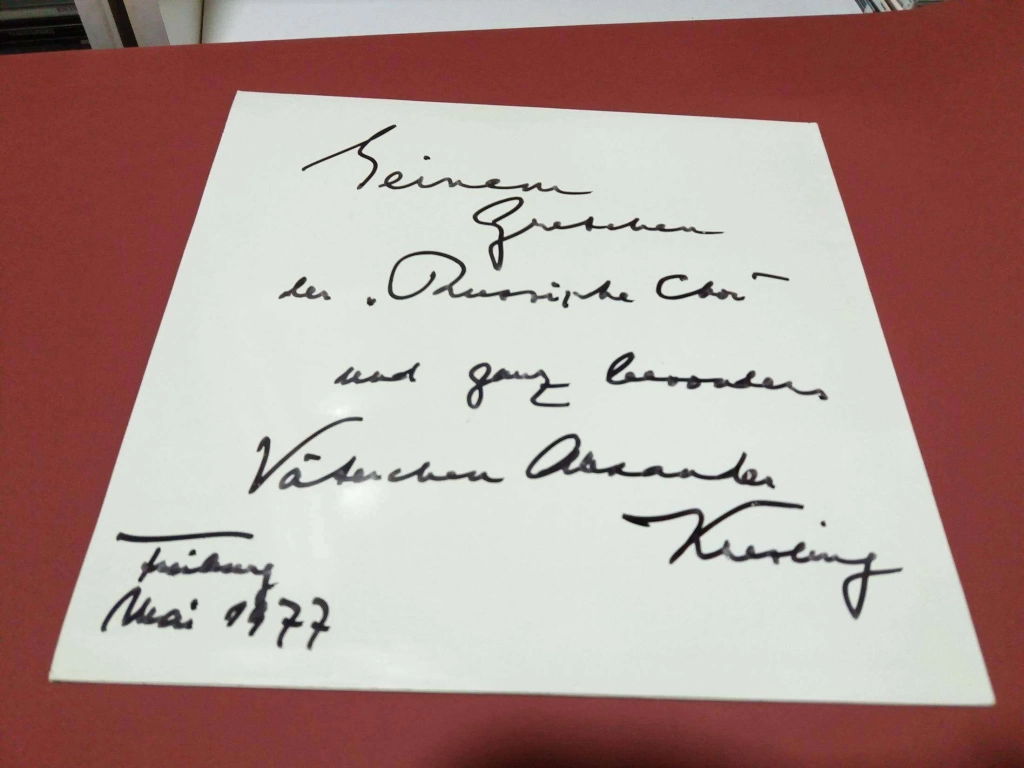 Seinem
Gretchen
der „Russische Chor“
und ganz besonders
Väterchen Alexander
Kresling
Freiburg
Mai 1977